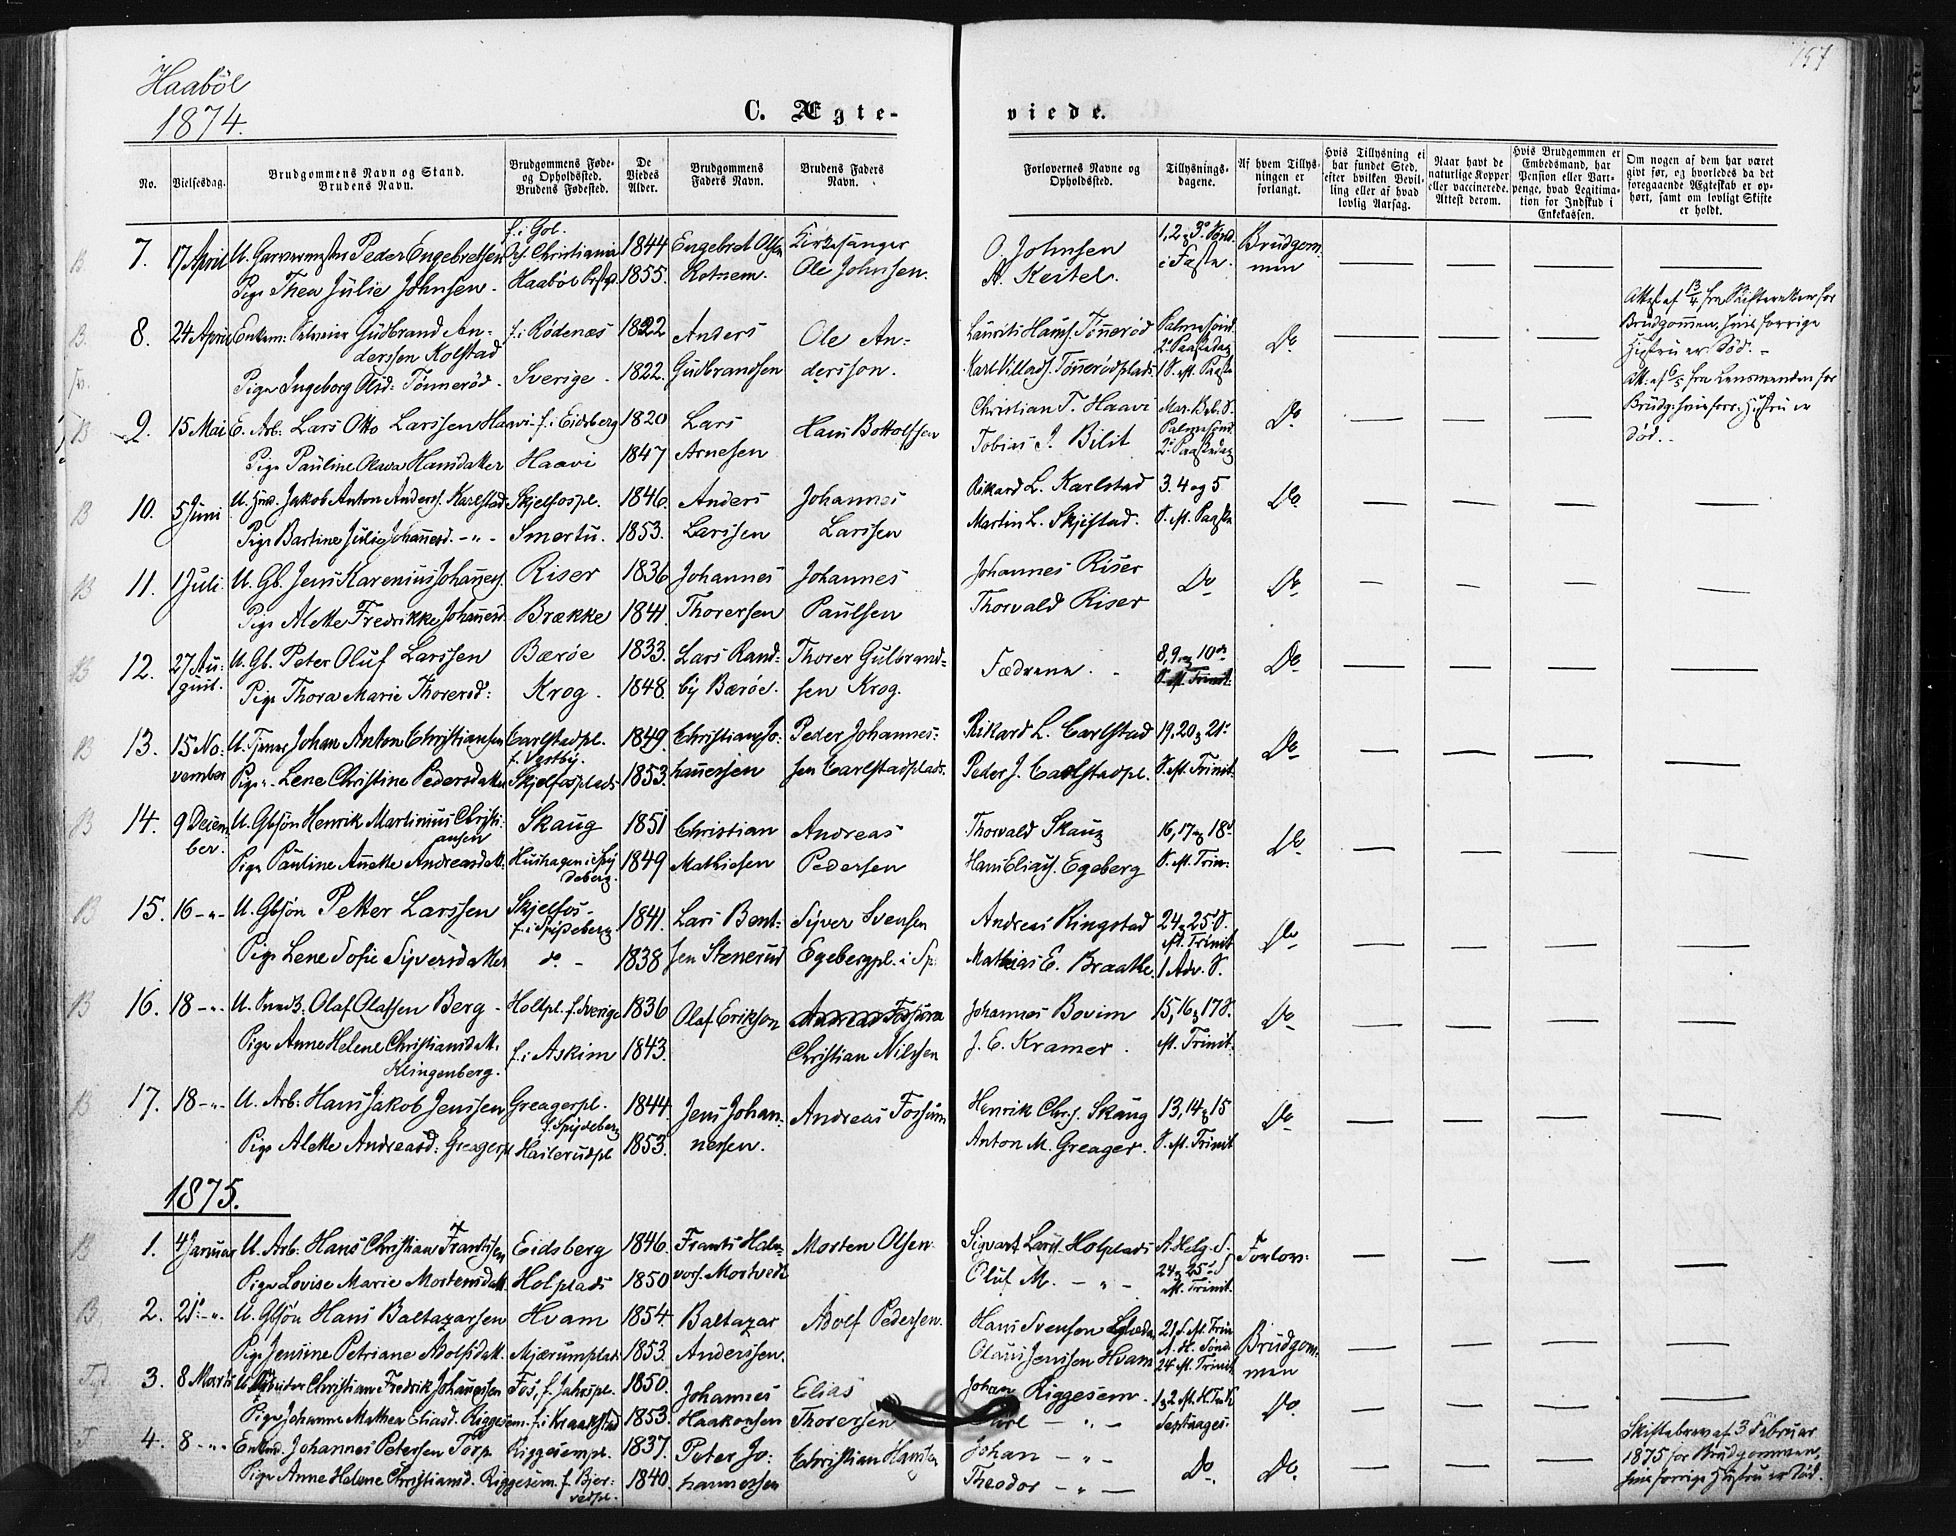 157
Haabøl
1874.
C. Ægte-
viede.
No.
Vielsesdag.
Brudgommens Navn og Stand.
Brudens Navn.
Brudgommens Føde-
og Opholdssted.
Brudens Fødested.
De
Viedes
Alder.
Brudgommens
Faders Navn.
Brudens Faders
Navn.
Forlovernes Navne og
Opholdssted.
Tillysnings-
dagene.
Af hvem Tillys-
ningen er
forlangt.
Hvis Tillysning ei
har fundet Sted,
efter hvilken Bevil-
ling eller af hvad
lovlig Aarsag.
Naar havt de
naturlige Kopper
eller vaccinerede.
Attest derom.
Hvis Brudgommen er
Embedsmand, har
Pension eller Vart-
penge, hvad Legitima-
tion for Indskud i
Enkekassen.
Om nogen af dem har været
givt før, og hvorledes da det
foregaaende Ægteskab er op-
hørt, samt om lovligt Skifte
er holdt.
B 7. 17 April U. Garvermester Peder Engebretsen f. i Gol. Christiania 1844 Engebret Olsen Kirkesanger O. Johnsen 1, 2 & 3 Sønd. Brudgom-
Pige Thea Julie Johnsen. Haabøl 1855. Rotnem. Ole Johnsen. A. Keitel. i Faste. men
B. 8. 24 April Enkem: Gudbrand An- f. i Rødenæs 1822 Anders Ole An- Laurits Hans. Tønnerød Palmesønd. Do
derssen Kolstad 2 Paaskedag
Pige Ingeborg Olsd. Tønnerød. Sverige. 1822. Gudbrandsen dersson. Karl Villads. Tønnerødplads. 1 S. eft. Paaske
Attest af 13/4 fra Skifteretten for
Brudgommen, hvis forrige
Hustru er død. -
B 9. 15 Mai E. Arb: Lars Otto Larssen Haavi f. i Eidsberg 1820 Lars Hans Bottolfsen Christian T. Haavi Mar. Beb. S. Do
Palmesønd.
Pige Pauline Olava Hansdatter Haavi 1847 Arnesen Tobias J. Bilit 2 Paaskedag
Att: af 6/5 fra Lensmanden for
Brudg: hvis forr. Hustru er
død.
B 10. 5 Juni U. Jakob Anton Anders. Karlstad Skjelfospl. 1846. Anders Johannes Rikard L. Karlstad 3. 4 og 5 Do
Pige Bartine Julie Johannesd. -"- Smertu. 1853. Larssen Larssen Martin L. Skjeftad. S. eft. Paaske
B 11. 1 Juli U. Gb. Jens Karenius Johannes. Riser 1836 Johannes Johannes Johannes Riser Do Do
Pige Alette Fredrikke Johannesd. Brække 1841. Thorersen Paulsen Thorvald Riser
B 12. 27 Au- U. Gb. Peter Oluf Larssen Bærøe 1833. Lars Rand- Thorer Gulbrand- Fædrene. 8, 9 og 10de Do
gust. Pige Thora Marie Thorersd: Krog. 1848. by Bærøe. sen Krog. S. eft. Trinit:
B 13. 15 No- U. Tjener Johan Anton Christiansen Carlstadpl. 1849. Christian Jo- Peder Johannes- Rikard L. Carlstad 19. 20 & 21 Do
f. Vestby.
vember Pige -"- Lene Christine Pedersdatter Skjelfosplads 1853. hannessen sen Carlstadplads. Peder J. Carlstadpl. S. eft. Trinit.
B 14. 9 Decem- U. Gbsøn Henrik Martinius Christi- Skaug 1851 Christian Andreas Thorvald Skaug 16, 17 & 18 Do
ber. ansen
Pige Pauline Anette Andreasdatt. Hushagen i Spy- 1849 Mathiesen Pedersen Hans Elias. Egeberg S. eft. Trin:
deberg.
B 15. 16 -"- U. Gbsøn Petter Larssen Skjelfos- 1841. Lars Bent- Syver Svensen Andreas Ringstad 24 & 25 S. Do
f. i Spydeberg eft. Trinit
Pige Lene Sofie Syversdatter do. - 1838 sen Stenerud Egebergpl. i Sp. Mathias E. Braatte. 1 Adv. S.
B 16. 18 -"- U. Smed: Olaf Olafsen Berg - Holtpl. f. Sverige 1836 Olaf Eriksen Andreas Fossum Johannes Bovim 15, 16 & 17 S. Do
Pige Anne Helene Christiansdatt. f. i Askim 1843. Christian Nilssen J. E. Kramer. eft. Trinit.
Klingenberg.
B 17. 18 -"- U. Arb: Hans Jakob Jenssen Greagerpl. 1844. Jens Johan- Andreas Fossum Henrik Chr. Skaug 13, 14 & 15 Do
f. Spydeberg
Pige Alette Andreasd: Greagerpl Haslerudpl 1853. nessen. Anton M. Greager. S. eft. Trinit
1875.
B 1. 4 Januar U. Arb: Hans Christian Frantssen Eidsberg 1846. Frants Hal- Morten Olsen. Sigvart Lars. Holplads A. Helg. S. Forlov:
Pige Lovise Marie Mortensdatt. Holplads 1850 vors. Mortvedt Oluf M. - " - 24 & 25 S
eft. Trinit.
B. 2. 21 -"- U. Gbsøn Hans Baltazarsen Hvam 1854. Baltazar Adolf Pedersen. Hans Svensen 21 S. eft. Trin Brudgom-
A. H. Sønd.
Pige Jensine Petriane Adolfsdatt. Mjærumplads 1853. Anderssen. Olaus Jenssen Hvam 24 eft. Trinit men
3. 8 Marts U. Christian Fredrik Johannssen Fos, f. 1850. Johannes Elias Johan Riggesem. 1 & 2 eft. H. Do
Pige Johanne Mathea Eliasd. Riggesem. f. i Kraakstad 1853. Haakonsen Thorersen Carl - " - Septuages.
4. 8 -"- Enkmd. Johannes Petersen Torp Riggesempl. 1837. Peter Jo- Christian Hansen Johan - " - Do Do
Pige Anne Helene Christiansd. Riggesem. f. Bjer- 1840. hannessen Theodor - " -
vedpl.
Skiftebrev af 3 Februar
1875 for Brudgommen,
hvis forrige Hustru er død.